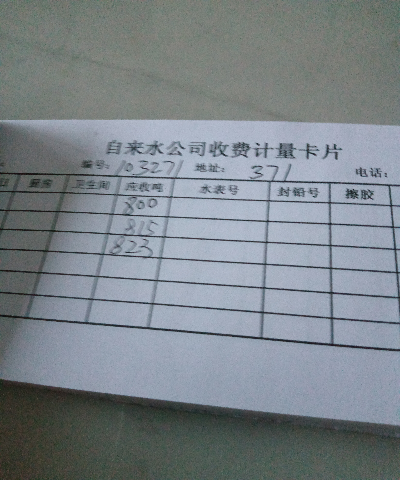 自来水公司收费计量卡片
编号:103271 地址: 371 电话:
厨房 卫生间 应收吨 水表号 封铅号 擦胶
800
815
823